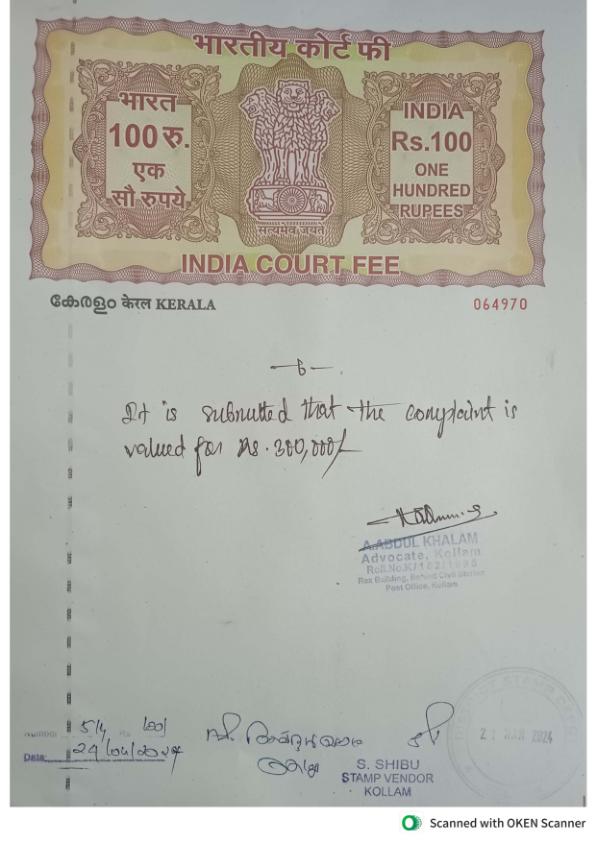 भारतीय कोर्ट फी
भारत
100 रु.
एक
सौ रुपये
सत्यमेव जयते
INDIA
Rs.100
ONE
HUNDRED
RUPEES
INDIA COURT FEE
കേരളം केरल KERALA
064970
-6-
It is submitted that the complaint is
valued for Rs. 300,000/-
A.ABDUL KHALAM
Advocate, Kollam
Roll.No.K/182/1995
Rex Building, Behind Civil Station
Post Office, Kollam
Date:
S. SHIBU
STAMP VENDOR
KOLLAM
2024
Scanned with OKEN Scanner